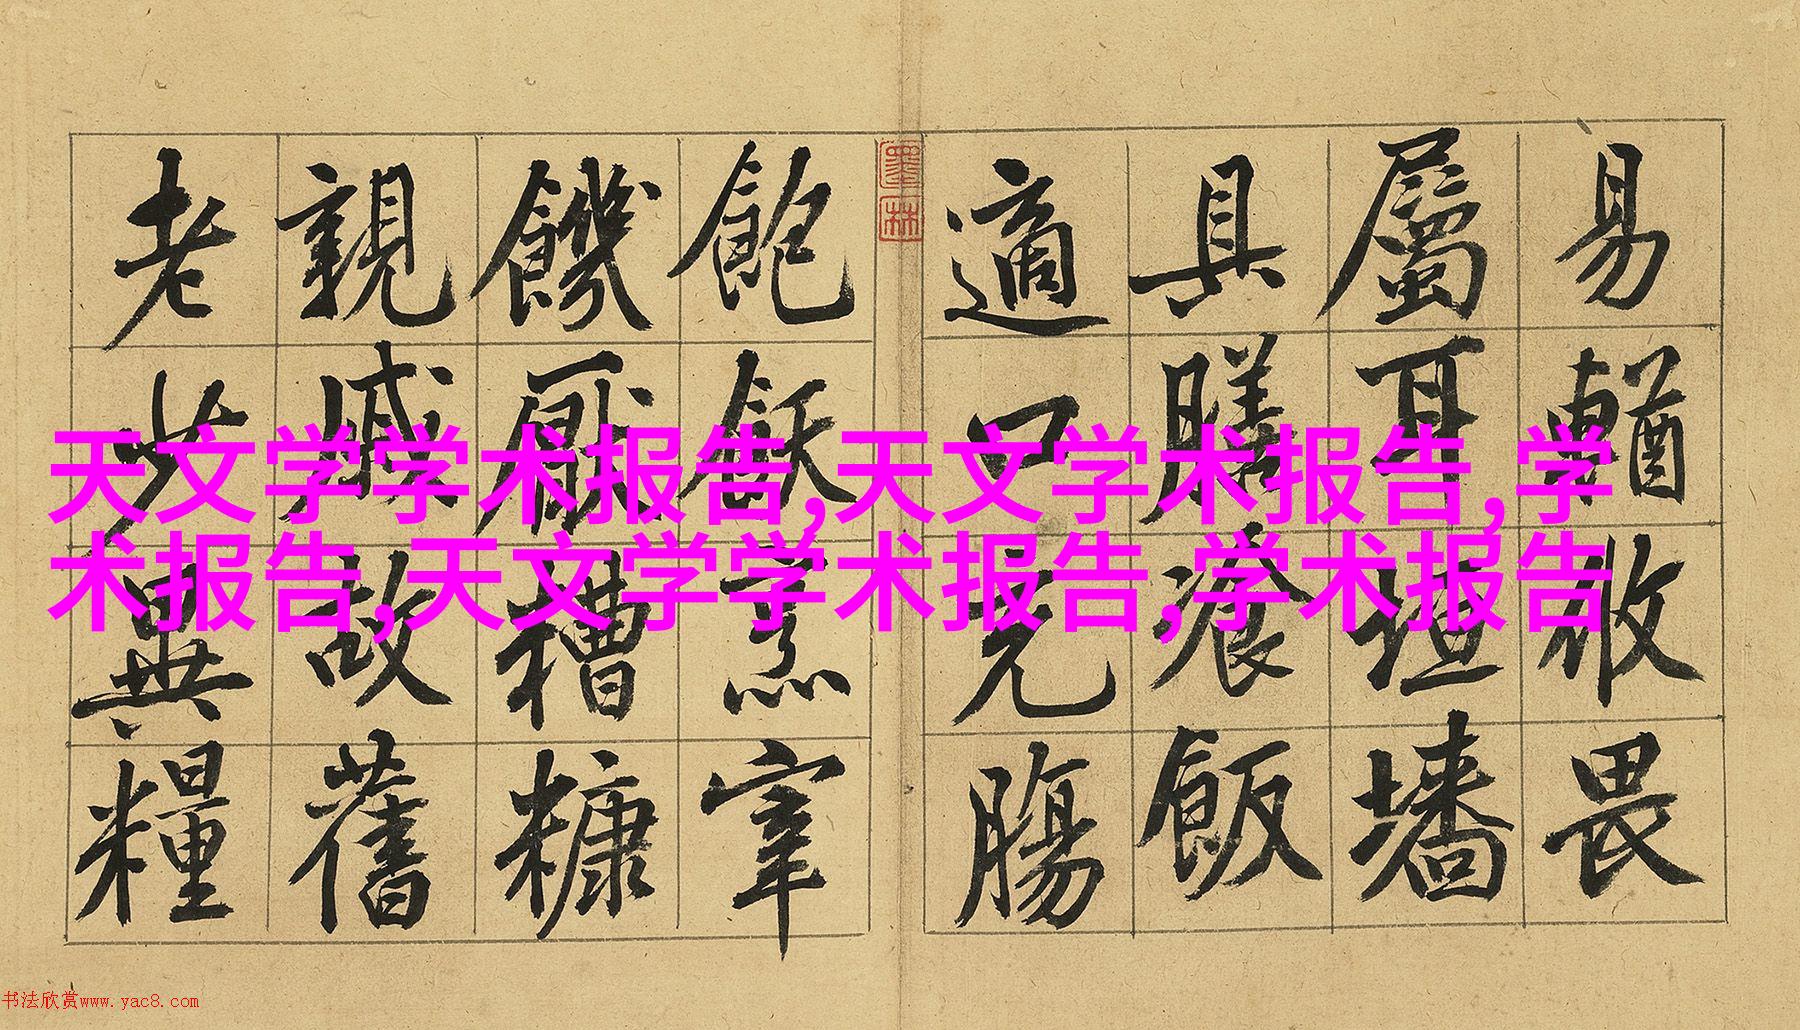 易輶攸畏
屬耳垣墻
具膳湌飯
適口充腸
墨林
飽飫烹宰
饑厭糟糠
親戚故舊
老少異糧
天文学学术报告,天文学术报告,学
术报告,天文学学术报告,学术报告
书法欣赏www.yac8.com